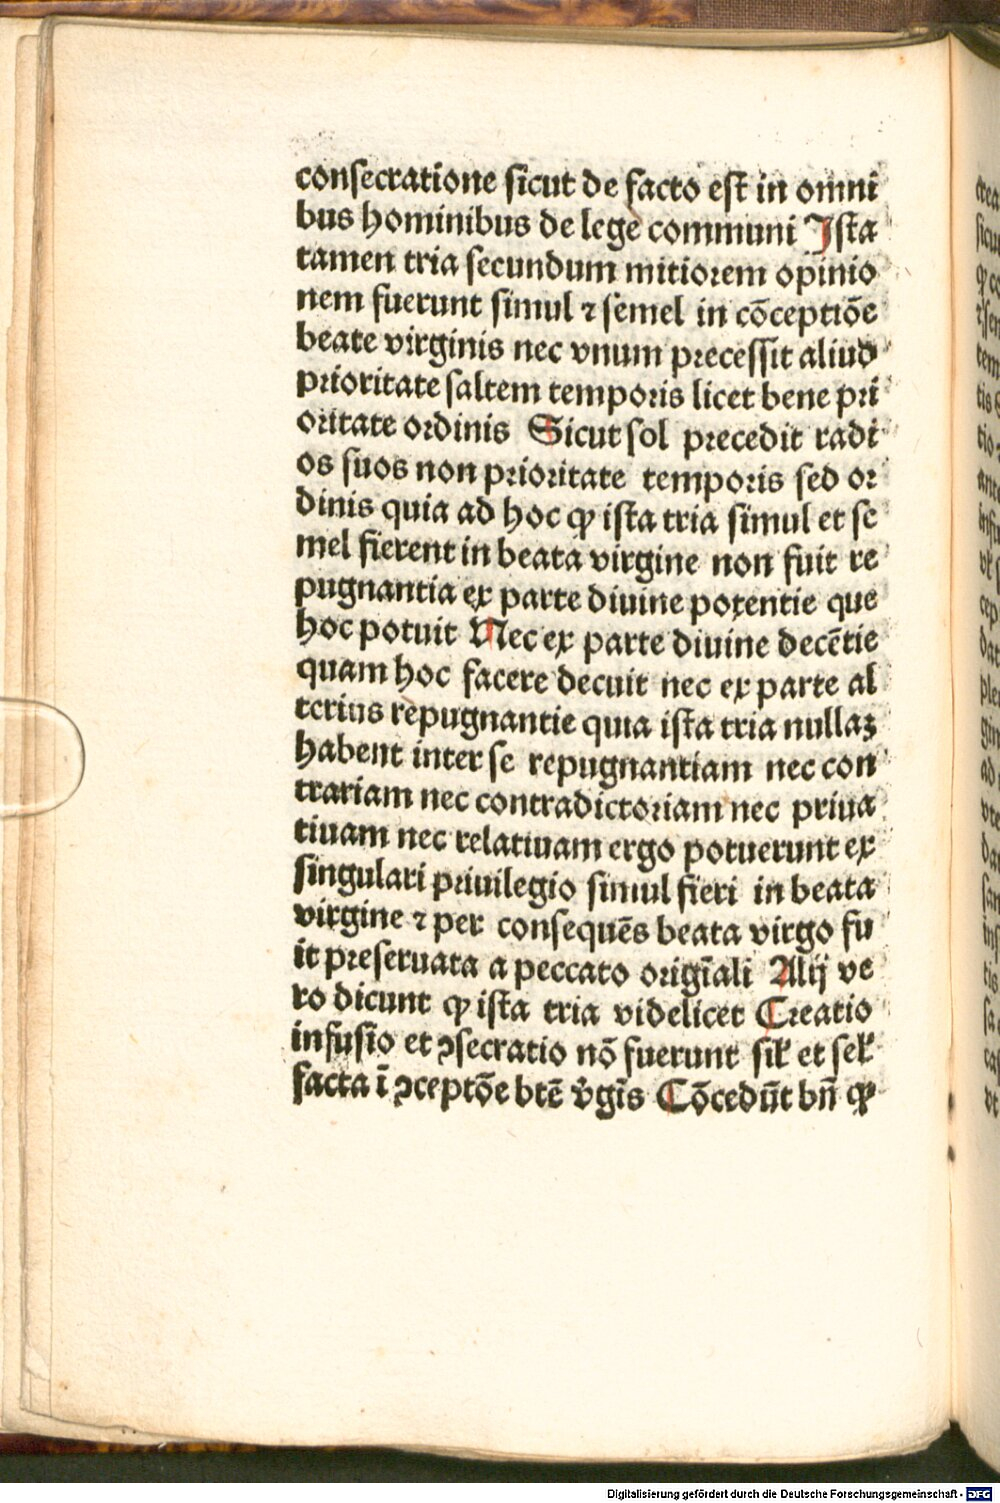 consecratione sicut de facto est in omni
bus hominibus de lege communi Ista
tamen tria secundum mitiorem opinio
nem fuerunt simul ⁊ semel in cōceptiōe
beate virginis nec vnum precessit aliud
prioritate saltem temporis licet bene pri
oritate ordinis Sicut sol precedit radi
os suos non prioritate temporis sed or
dinis quia ad hoc ꝙ ista tria simul et se
mel fierent in beata virgine non fuit re
pugnantia ex parte diuine potentie que
hoc potuit Nec ex parte diuine decētie
quam hoc facere decuit nec ex parte al
terius repugnantie quia ista tria nullaꝫ
habent inter se repugnantiam nec con
trariam nec contradictoriam nec priua
tiuam nec relatiuam ergo potuerunt ex
singulari priuilegio simul fieri in beata
virgine ⁊ per consequēs beata virgo fu
it preseruata a peccato origīali Alij ve
ro dicunt ꝙ ista tria videlicet Creatio
infusio et ꝯsecratio nō fuerunt sil̓ et sel̓
facta ī ꝯceptōe btē v̄gīs Cōcedūt bn̄ ꝙ
Digitalisierung gefördert durch die Deutsche Forschungsgemeinschaft - DFG